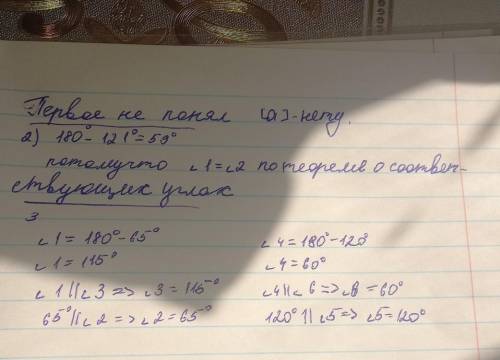 Первое не понял [а]-нету.
2) 180°-121°=59°
потамучто ∠1=∠2 по теореме о соответ-
ствующих углах
3
∠1=180°-65°
∠1=115°
∠1||∠3=>∠3=115°
65°||∠2=>∠2=65°
∠4=180°-120°
∠4=60°
∠4||∠6=>∠6=60°
120°||∠5=>∠5=120°